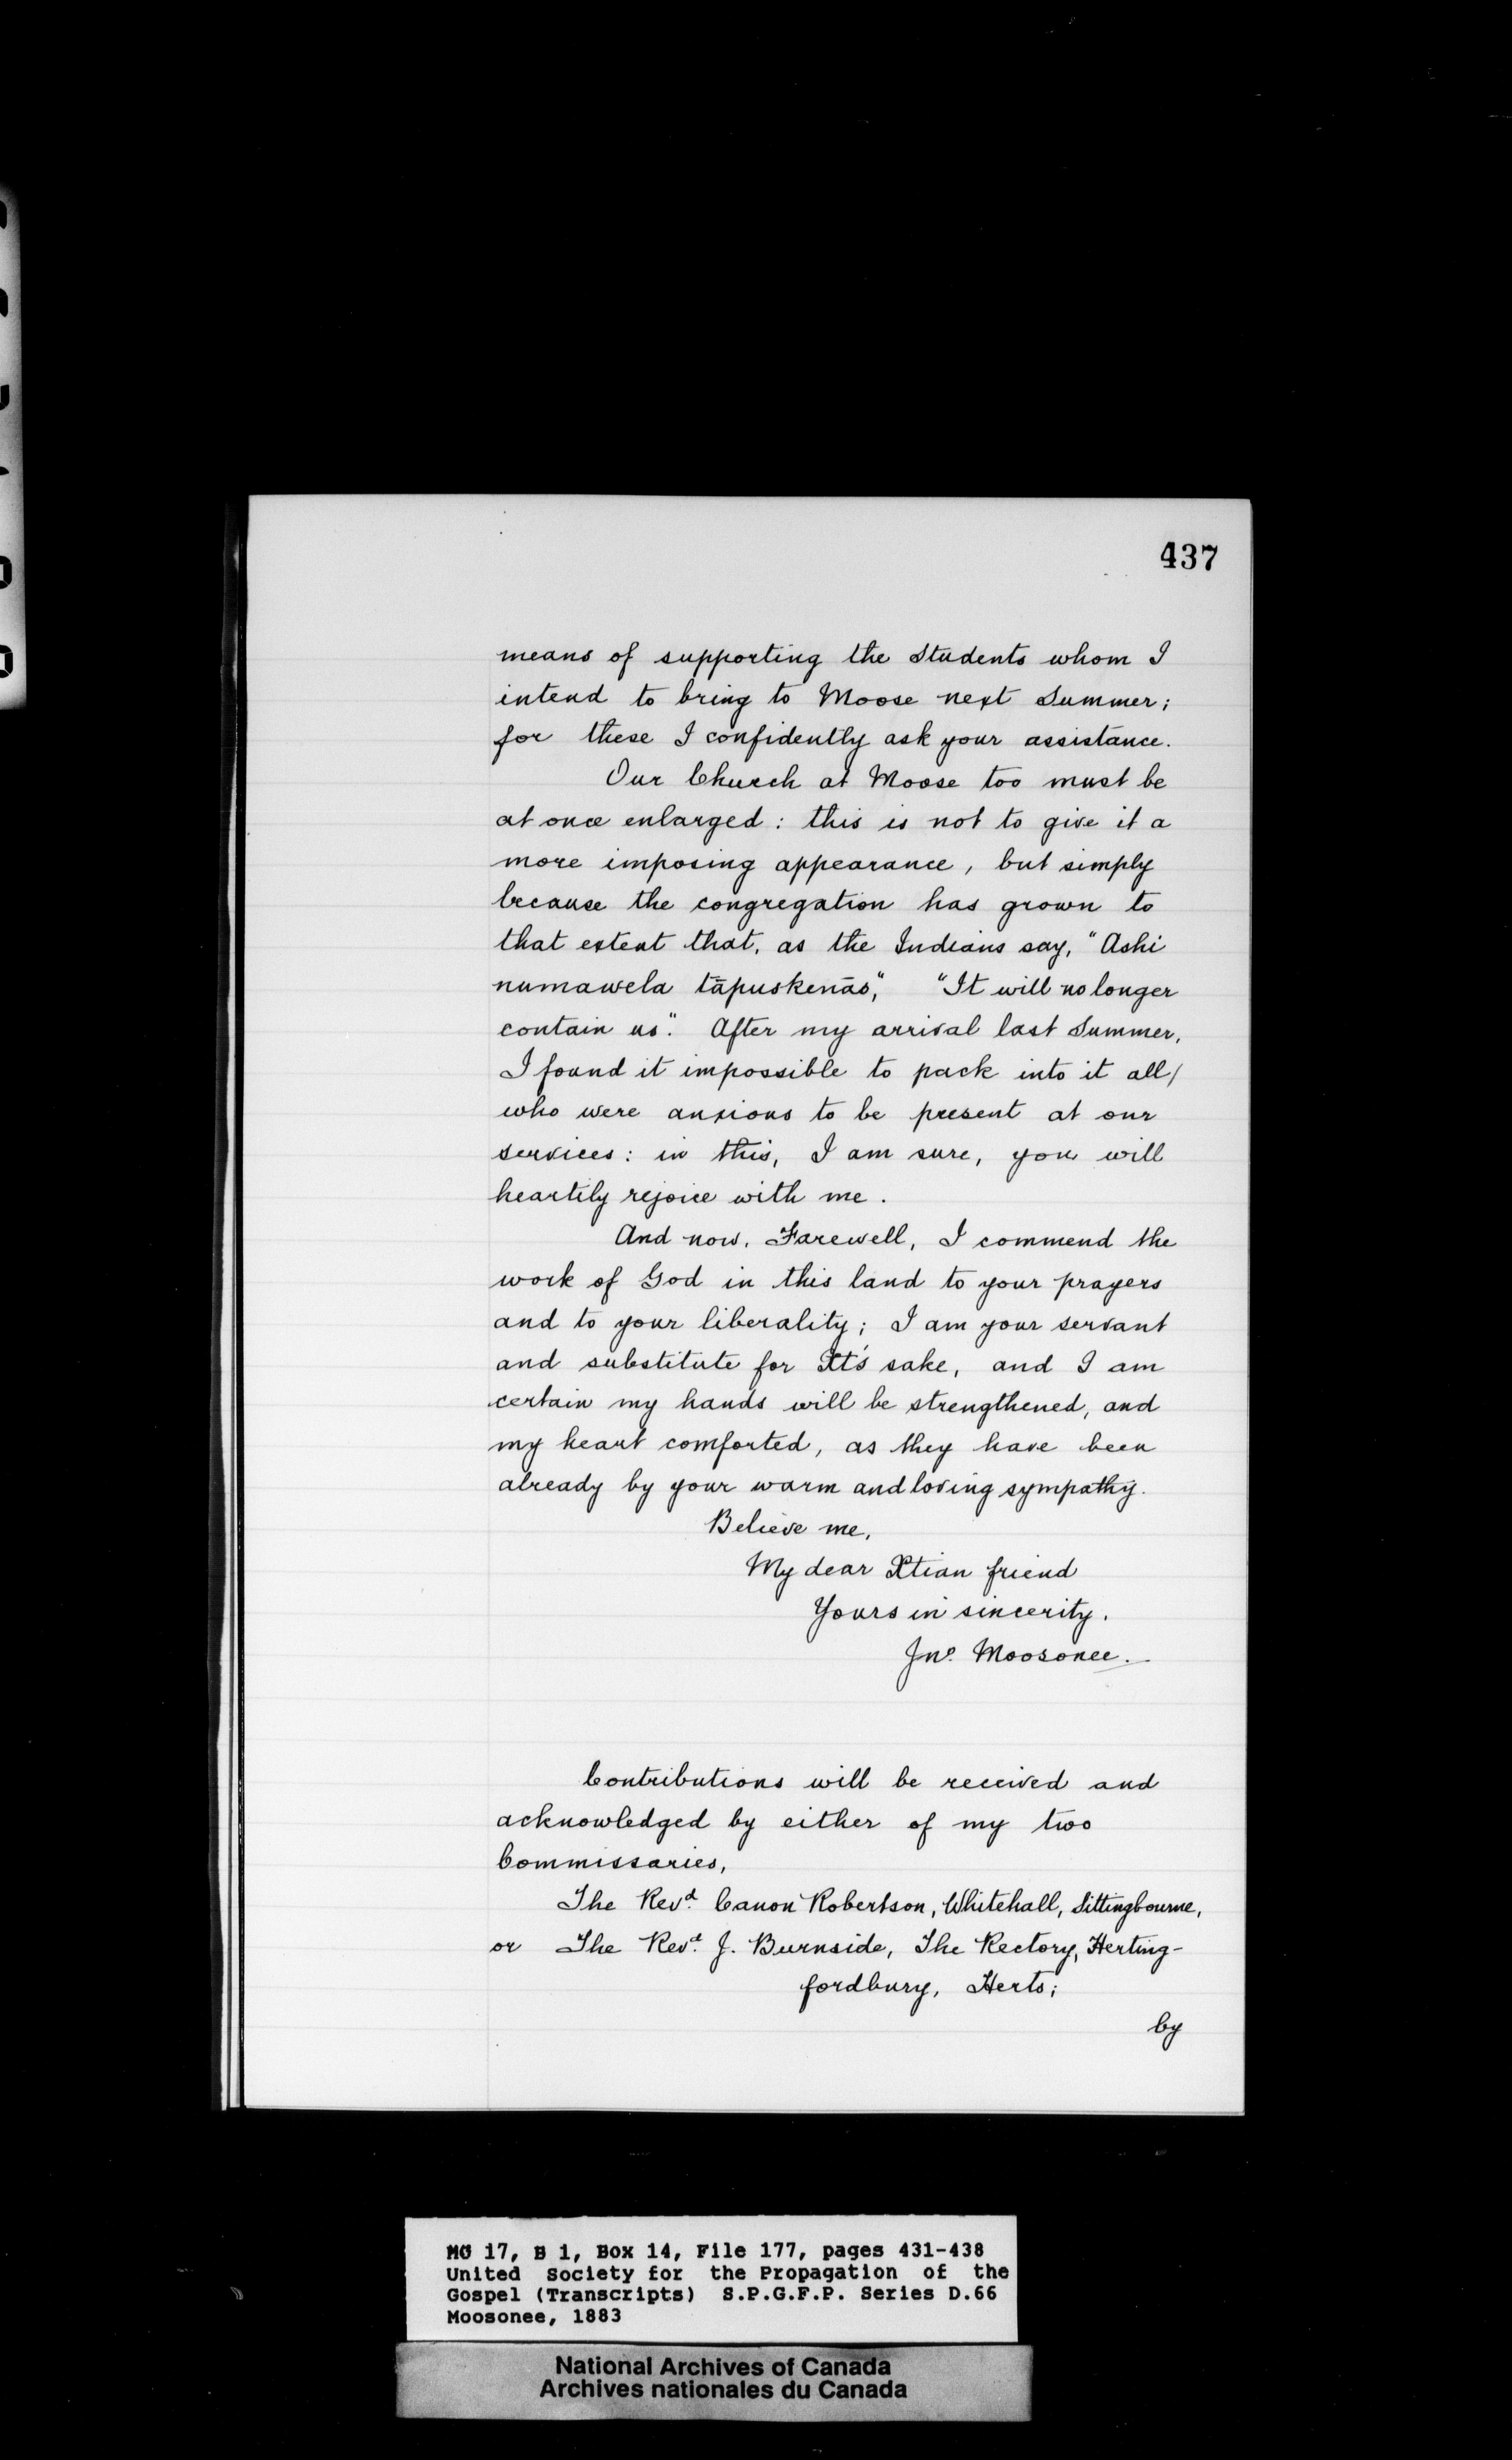 437
means of supporting the Students whom I
intend to bring to Moose next Summer;
for these I confidently ask your assistance.
Our Church at Moose too must be
at once enlarged: this is not to give it a
more imposing appearance, but simply
because the congregation has grown to
that extent that, as the Indians say, "Ashi
numawela tāpuskenās," "It will no longer
contain us." After my arrival last Summer,
I found it impossible to pack into it all/
who were anxious to be present at our
services: in this, I am sure, you will
heartily rejoice with me.
And now, Farewell, I commend the
work of God in this land to your prayers
and to your liberality; I am your servant
and substitute for Xt's sake, and I am
certain my hands will be strengthened, and
my heart comforted, as they have been
already by your warm and loving sympathy.
Believe me,
My dear Xtian friend
Yours in sincerity.
Jno. Moosonee.
Contributions will be received and
acknowledged by either of my two
Commissaries,
The Revd. Canon Robertson, Whitehall, Sittingbourne,
or The Revd. J. Burnside, The Rectory, Herting-
fordbury, Herts;
by
MG 17, B 1, Box 14, File 177, pages 431-438
United Society for the Propagation of the
Gospel (Transcripts) S.P.G.F.P. Series D.66
Moosonee, 1883
National Archives of Canada
Archives nationales du Canada